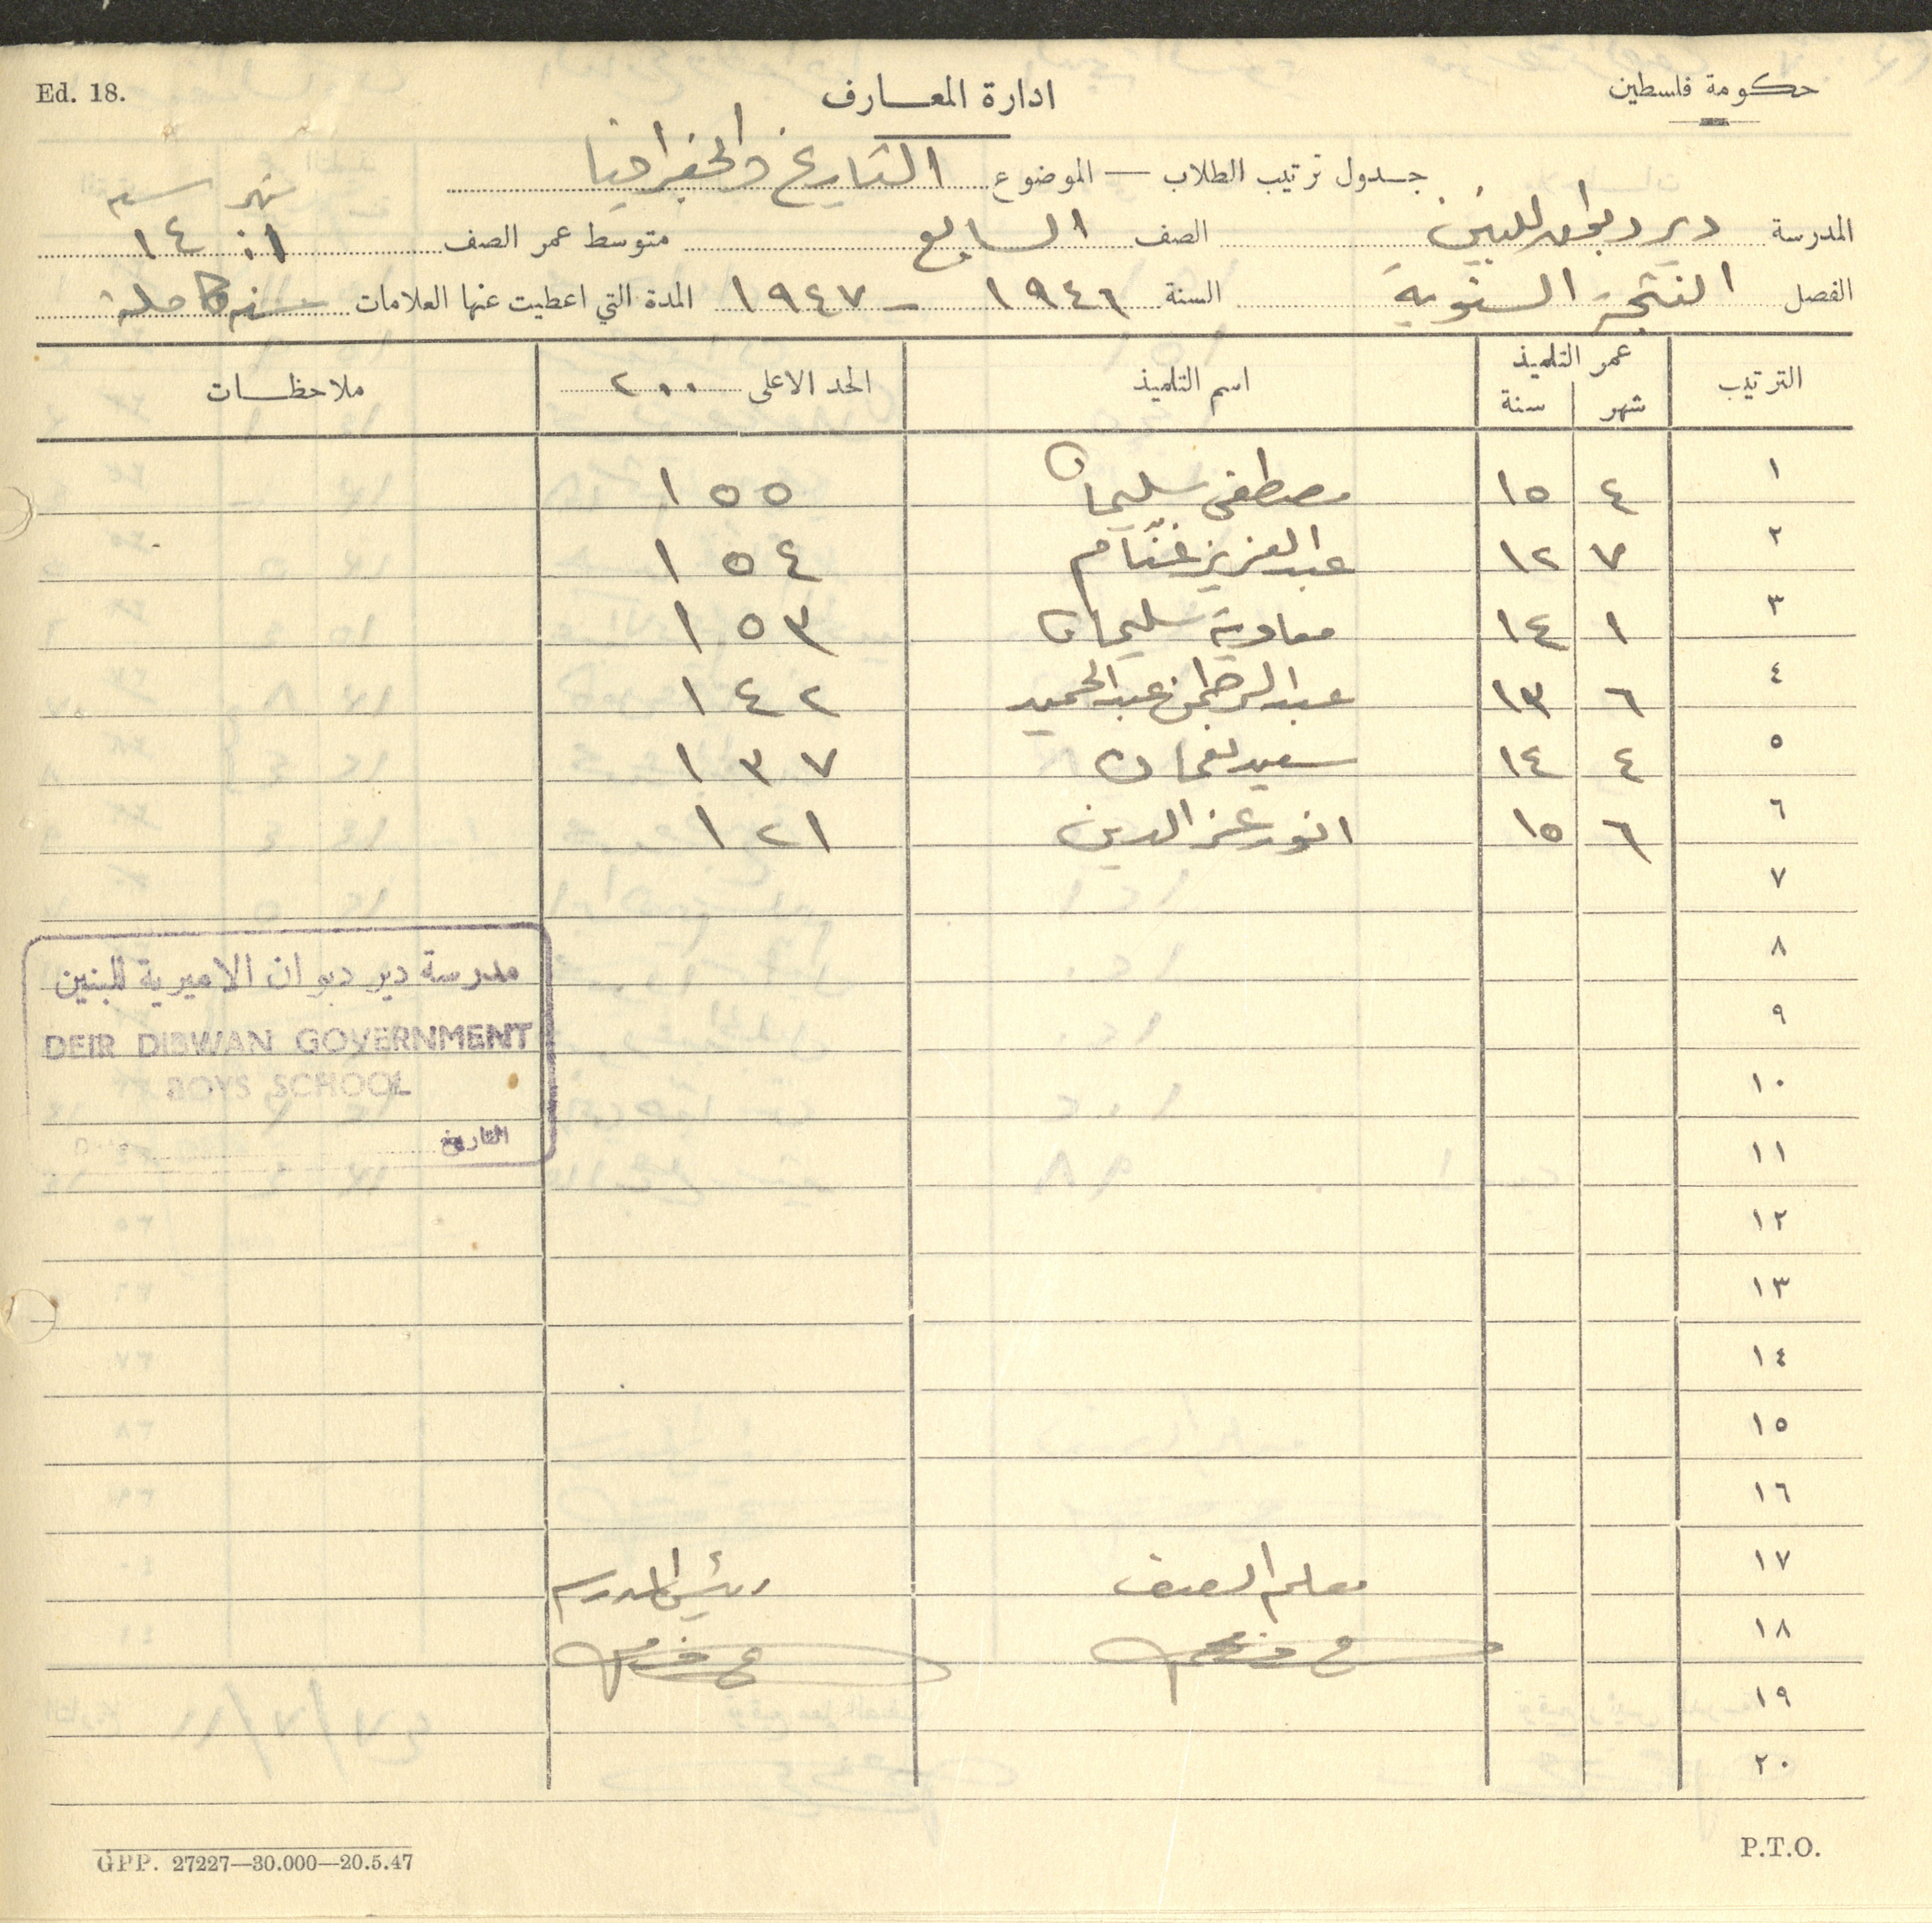 حكومة فلسطين
ادارة المعارف
Ed. 18.
جدول ترتيب الطلاب — الموضوع التاريخ والجغرافيا
شهر سنه
المدرسة دير دبوان للبنين الصف السابع متوسط عمر الصف ١٤
الفصل النتيجة السنوية السنة ١٩٤٦ - ١٩٤٧ المدة التي اعطيت عنها العلامات سنه كاملة
الترتيب عمر التلميذ اسم التلميذ الحد الاعلى ٢٠٠ ملاحظات
شهر سنة
١ ٤ ١٥ مصطفى سليمان ١٥٥
٢ ٧ ١٢ عبد العزيز غنّام ١٥٤
٣ ١ ١٤ معاوية سليمان ١٥٣
٤ ٦ ١٣ عبد الرحمن عبد الحميد ١٤٢
٥ ٤ ١٤ سعيد نعمان ١٣٧
٦ ٦ ١٥ انور عز الدين ١٢١
٧
٨
٩
١٠
١١
١٢
١٣
١٤
١٥
١٦
١٧ معلم الصف رئيس المدرسه
١٨
١٩
٢٠
مدرسة دير دبوان الاميرية للبنين
DEIR DIBWAN GOVERNMENT
BOYS SCHOOL
التاريخ
GPP. 27227—30.000—20.5.47
P.T.O.